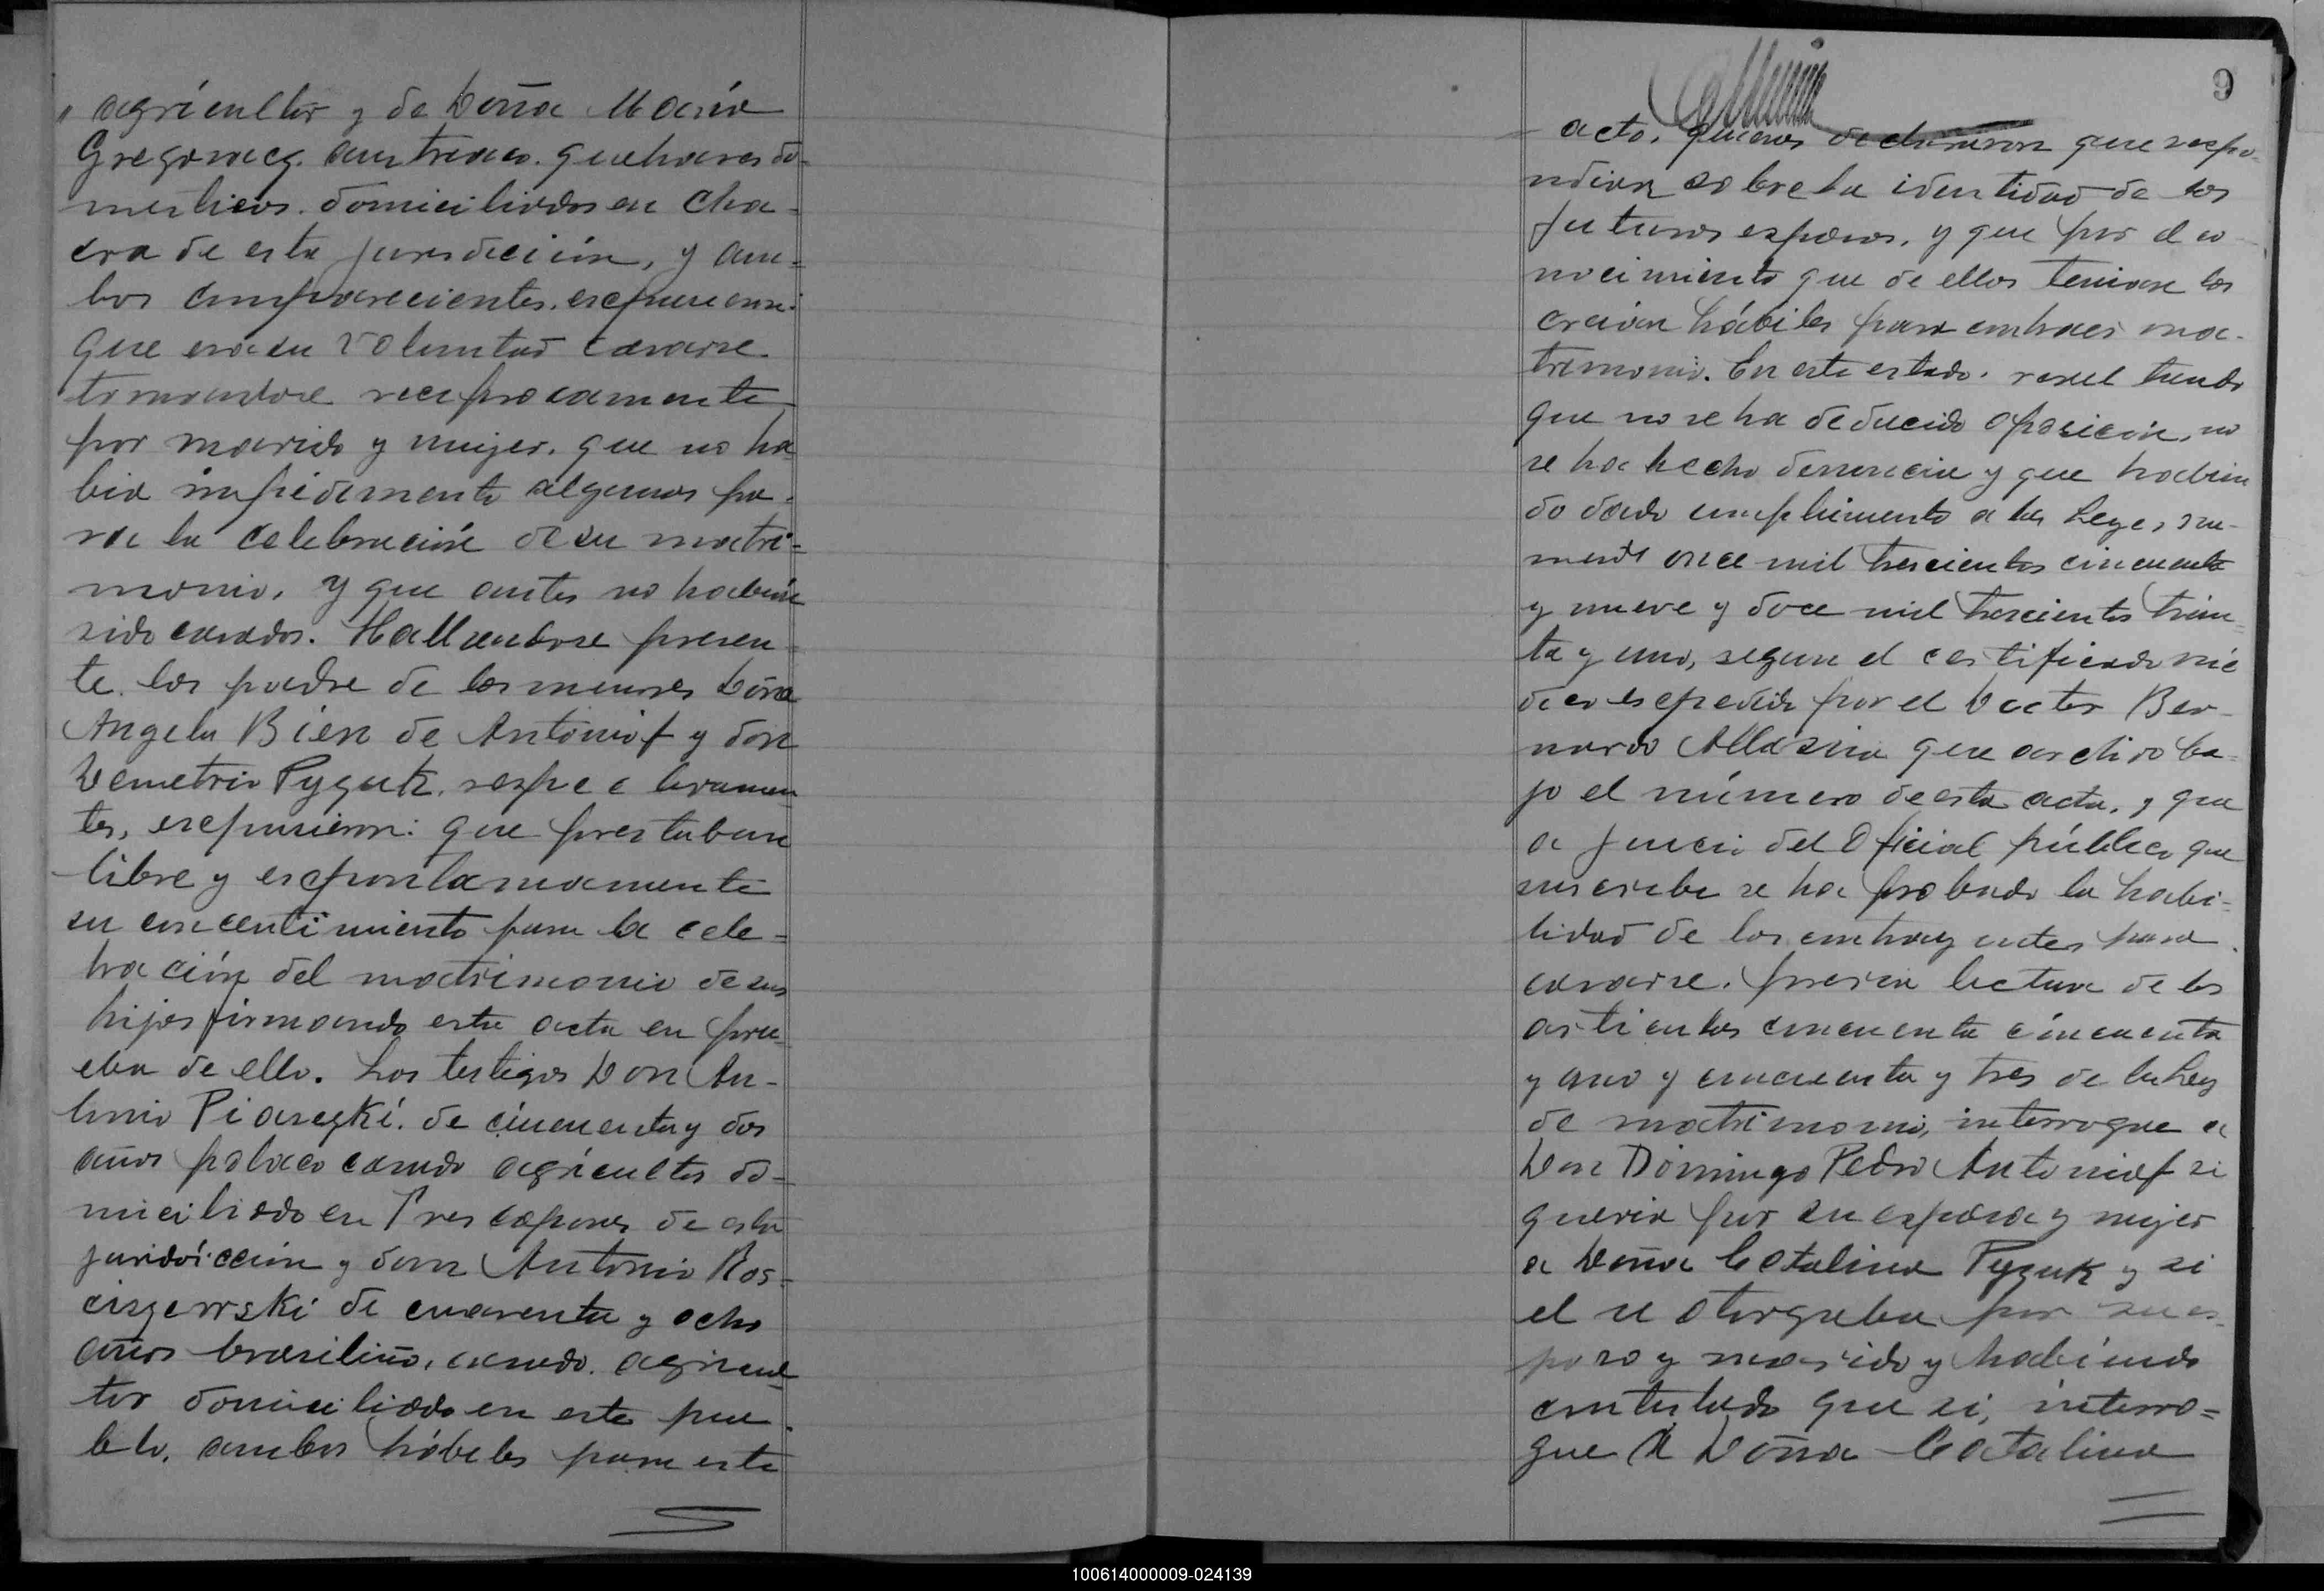 agrícultor y de Doña María
Gregoracz. austriaca. quehaceres do-
mesticos. domiciliados en Cha-
cra de esta jurisdicción, y am-
bos comparecientes. expusieron:
Que era su voluntad casarse.
tomandose reciprocamente
por marido y mujer. que no ha
bia impedimento algunos pa-
ra la celebración de su matri-
monio, y que antes no habían
sido casados. Hallandose presen-
te. los padre de los menores Doña
Angela Bien de Antoniof y don
Demetrio Pyguk. respectivamen
tes, expusieron: que prestaban
libre y espontaneamente
su concentimiento para la cele-
bración del matrimonio de sus
hijos firmando esta acta en pru-
eba de ello. Los testigos Don An-
tonio Piaseski. de cincuenta y dos
años polaco casado agrícultor do-
miciliado en Tres capones de esta
juridicción y don Antonio Ros-
ciszewski de cuarenta y ocho
años brasiliño, casado. agricul
tor domiciliado en este pue-
blo. ambos hábiles para este
9
acto. quienes declararon que respo-
ndian sobre la identidad de los
futuros esposos. y que por el co-
nocimiento que de ellos tenian los
creian hábiles para contraer ma-
trimonio. En este estado. resultando
que no se ha deducido oposición, no
se ha hecho denuncia y que habien
do dado cumplimiento a las Leyes nu-
meros once mil trescientos cincuenta
y nueve y doce mil trescientos trein-
ta y uno, segun el certificado mé
dico expedido por el Doctor Ber-
nardo Allasina que archivo ba-
jo el número de esta acta, y que
a juicio del Oficial público que
suscribe se ha probado la habi-
lidad de los contrayentes para
casarse. previa lectura de los
articulos cincuenta cincuenta
y uno y cincuenta y tres de la Ley
de matrimonio, interrogue a
Don Domingo Pedro Antoniof si
queria por su esposa y mujer
a Doña Catalina Pyguk y si
el se otorgaba por su es-
poso y marido y habiendo
contestado que si, interro-
gue A Doña Catalina
100614000009-024139